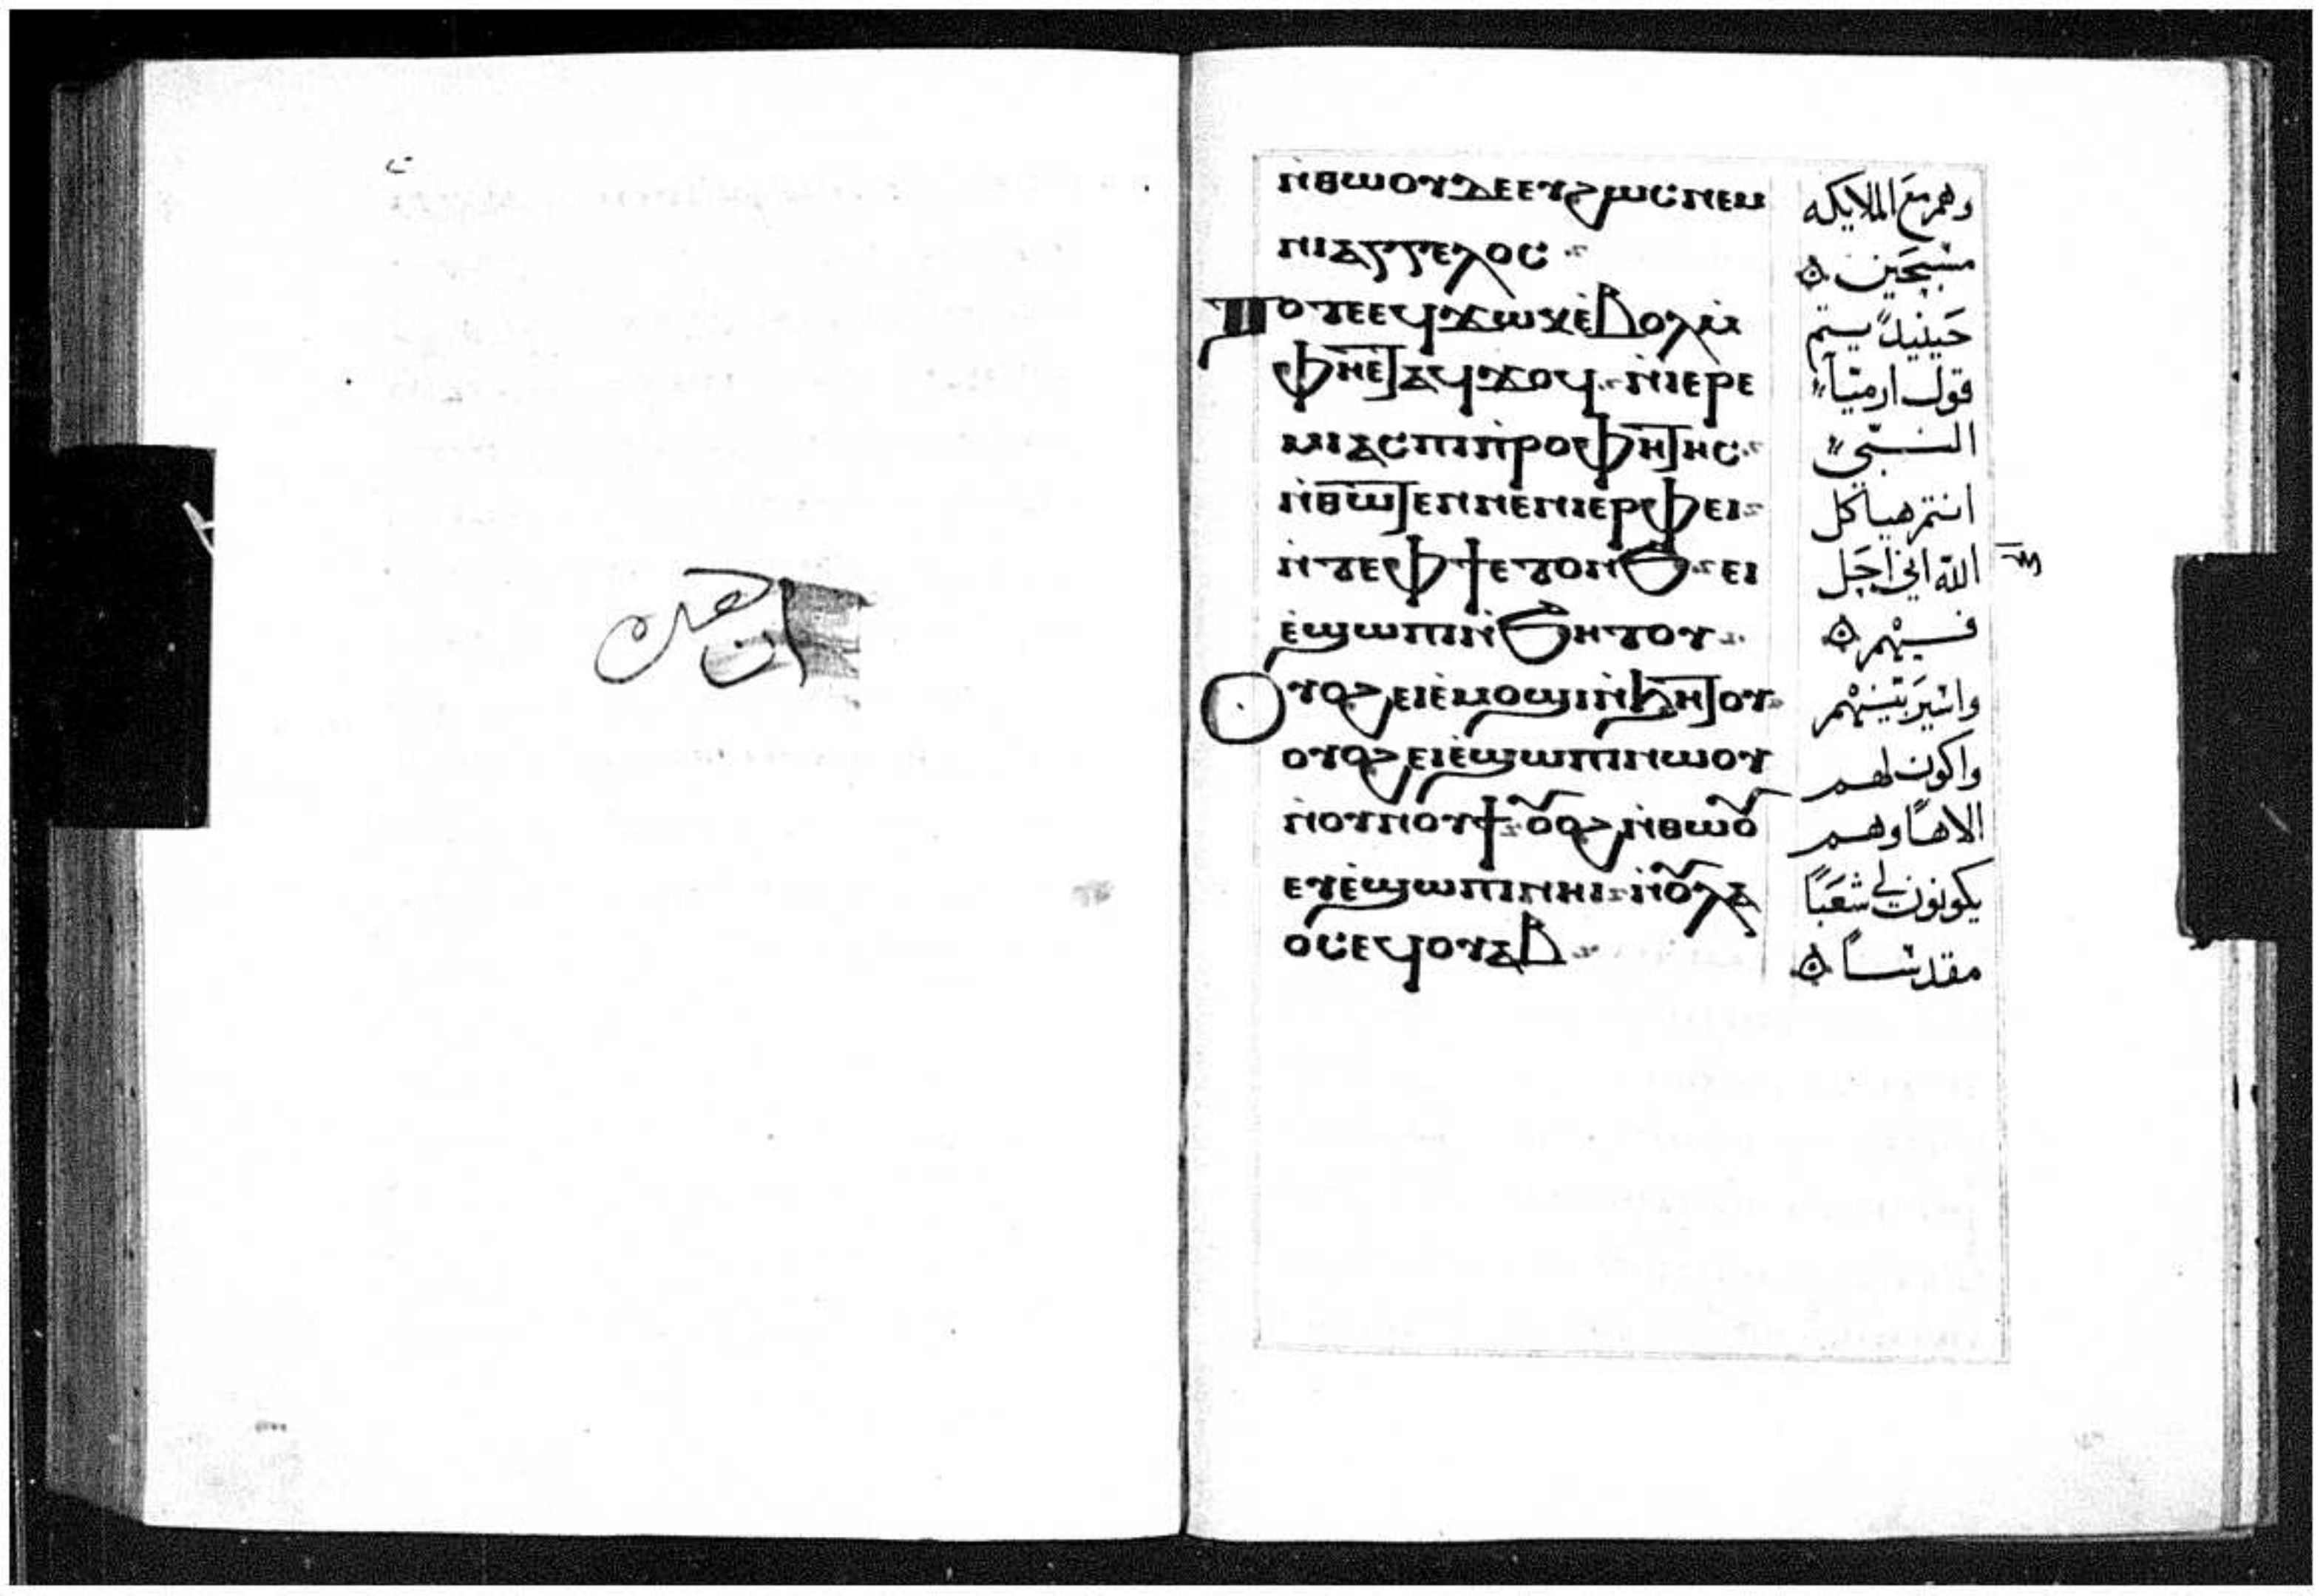 ⲛ̀ⲑⲱⲟⲩⲇⲉⲉⲩϩⲱⲥⲛⲉⲙ
ⲛⲓⲁⲅⲅⲉⲗⲟⲥ
ⲧⲟⲧⲉⲉϥϫⲱⲕⲉ̀ⲃⲟⲗⲛ̀
ⲫⲏⲉⲧⲁϥϫⲟϥ ⲛ̀ⲓⲉⲣⲉ
ⲙⲓⲁⲥⲡⲓⲡ̀ⲣⲟⲫⲏⲧⲏⲥ
ⲛ̀ⲑⲱⲧⲉⲛⲛⲉⲛⲓⲉⲣⲫⲉⲓ
ⲛ̀ⲧⲉⲫϯⲉⲧⲟⲛϧ ⲉⲓ
ⲉ̀ϣⲱⲡⲓⲛ̀ϧⲏⲧⲟⲩ
ⲟⲩⲟϩⲉⲓⲉ̀ⲙⲟϣⲓⲛ̀ϧⲏⲧⲟⲩ
ⲟⲩⲟϩⲉⲓⲉ̀ϣⲱⲡⲓⲛⲱⲟⲩ
ⲛ̀ⲟⲩⲛⲟⲩϯ ⲟⲩⲟϩⲛ̀ⲑⲱⲟⲩ
ⲉⲩⲉ̀ϣⲱⲡⲓⲛⲏⲓ ⲛ̀ⲟⲩⲗⲁ
ⲟⲥⲉϥⲟⲩⲁⲃ
وهم مع الملايكه
مسبحين
حينيدٍ يتم
قول ارميا
النبي
انتم هياكل
الله اني احل
فيهم
واسير بينهم
واكون لهم
الاهاً وهم
يكونون لي شعباً
مقدساً